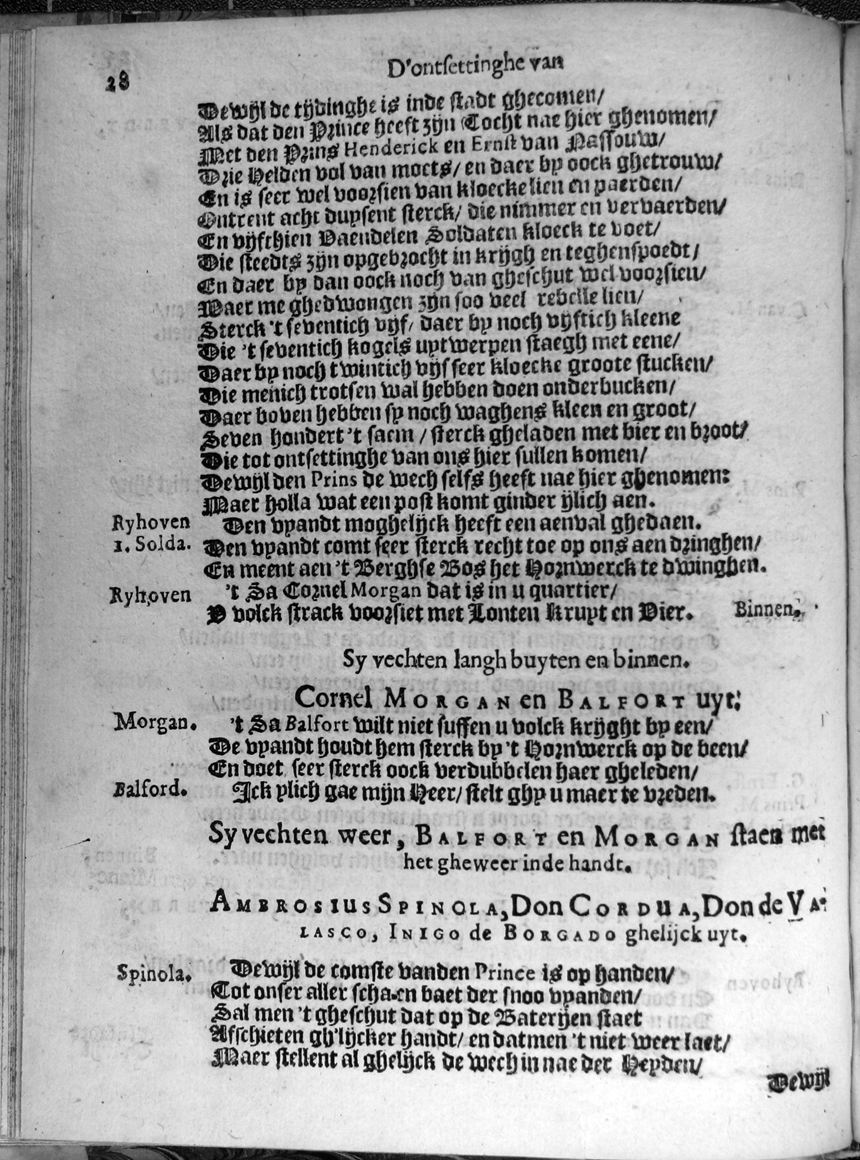 28
D'ontsettinghe van
Dewijl de tijdinghe is inde stadt ghecomen/
Als dat den Prince heeft zijn Tocht nae hier ghenomen/
Met den Prins Henderick en Ernst van Nassouw/
Drie Helden vol van moets/ en daer by oock ghetrouw/
En is seer wel voorsien van kloecke lien en paerden/
Ontrent acht duysent sterck/ die nimmer en vervaerden/
En vijfthien Vaendelen Soldaten kloeck te voet/
Die steedts zijn opgebrocht in krijgh en teghenspoedt/
En daer by dan oock noch van gheschut wel voorsien/
Waer me ghedwongen zijn soo veel rebelle lien/
Sterck 't seventich vijf/ daer by noch vijftich kleene
Die 't seventich kogels uytwerpen staegh met eene/
Daer by noch twintich vijf seer kloecke groote stucken/
Die menich trotsen wal hebben doen onderbucken/
Daer boven hebben sy noch waghens kleen en groot/
Seven hondert 't saem / sterck gheladen met bier en broot/
Die tot ontsettinghe van ons hier sullen komen/
Dewijl den Prins de wech selfs heeft nae hier ghenomen:
Maer holla wat een post komt ginder ijlich aen.
Ryhoven Den vyandt moghelijck heeft een aenval ghedaen.
1. Solda. Den vyandt comt seer sterck recht toe op ons aen dringhen/
En meent aen 't Berghse Bos het Hornwerck te dwinghen.
Ryhoven 't Sa Cornel Morgan dat is in u quartier/
V volck strack voorsiet met Lonten Kruyt en Vier. Binnen.
Sy vechten langh buyten en binnen.
Cornel MORGAN en BALFORT uyt.
Morgan. 't Sa Balfort wilt niet suffen u volck krijght by een/
De vyandt houdt hem sterck by 't Hornwerck op de been/
En doet seer sterck oock verdubbelen haer gheleden/
Balford. Ick ylich gae mijn Heer/ stelt ghy u maer te vreden.
Sy vechten weer, BALFORT en MORGAN staen met
het gheweer inde handt.
AMBROSIUS SPINOLA, Don CORDUA, Don de VA-
LASCO, INIGO de BORGADO ghelijck uyt.
Spinola. Dewijl de comste vanden Prince is op handen/
Tot onser aller schaen baet der snoo vyanden/
Sal men 't gheschut dat op de Baterijen staet
Afschieten gh'lijcker handt/ en datmen 't niet weer laet/
Maer stellent al ghelijck de wech in nae der Heyden/
Dewijl